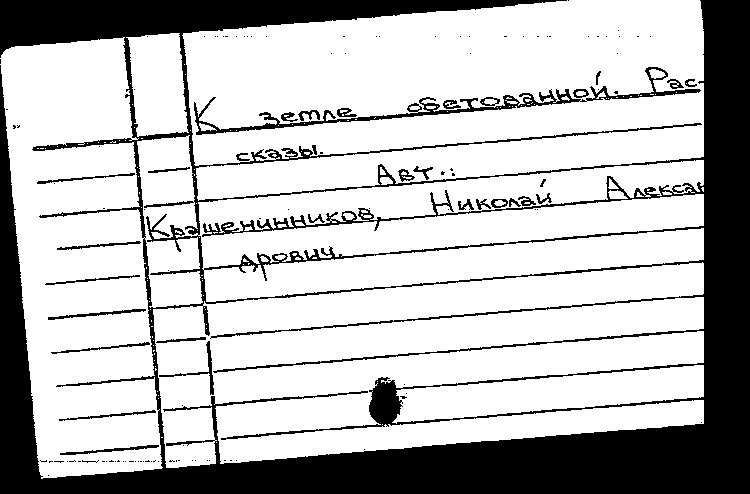 К земле обетованной. Рас-
сказы.
Авт.:
Крашенинников, Николай Алексан
дрович.